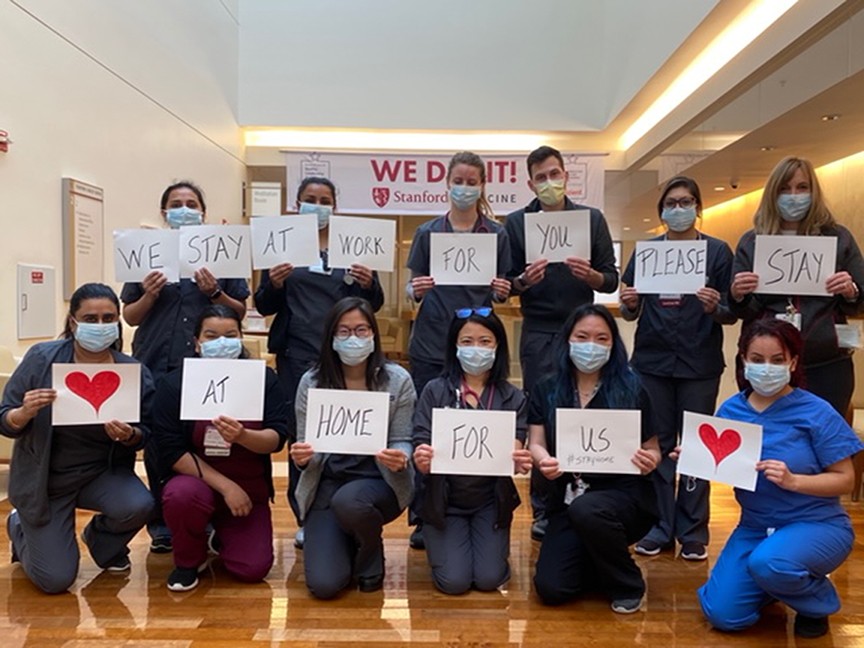 WE D IT!
Stanford CINE
WE STAY AT WORK FOR YOU PLEASE STAY
AT HOME FOR US
#STAYHOME